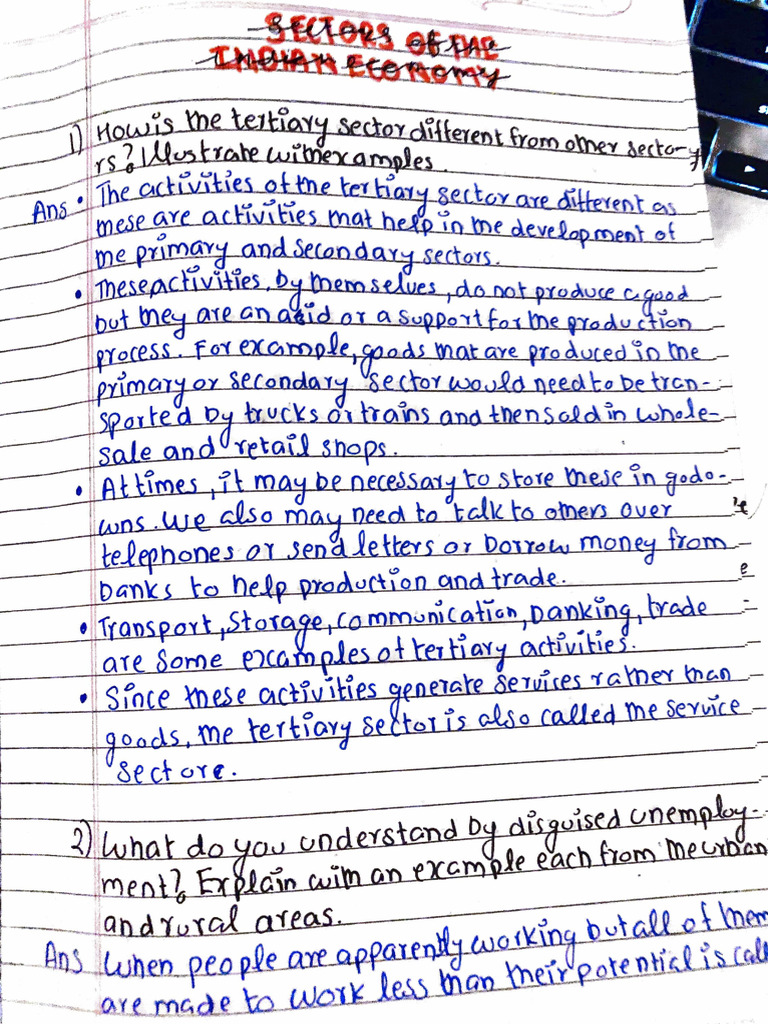 SECTORS OF THE
INDIAN ECONOMY
1) How is the tertiary sector different from other secto-
rs? Illustrate with examples.
Ans • The activities of the tertiary sector are different as
these are activities that help in the development of
the primary and secondary sectors.
• These activities, by themselves, do not produce a good
but they are an aid or a support for the production
process. For example, goods that are produced in the
primary or secondary sector would need to be tran-
sported by trucks or trains and then sold in whole-
sale and retail shops.
• At times, it may be necessary to store these in godo-
wns. We also may need to talk to others over
telephones or send letters or borrow money from
banks to help production and trade.
• Transport, storage, communication, banking, trade
are some examples of tertiary activities.
• Since these activities generate services rather than
goods, the tertiary sector is also called the service
sector.
2) What do you understand by disguised unemploy-
ment? Explain with an example each from the urban
and rural areas.
Ans When people are apparently working but all of them
are made to work less than their potential is call